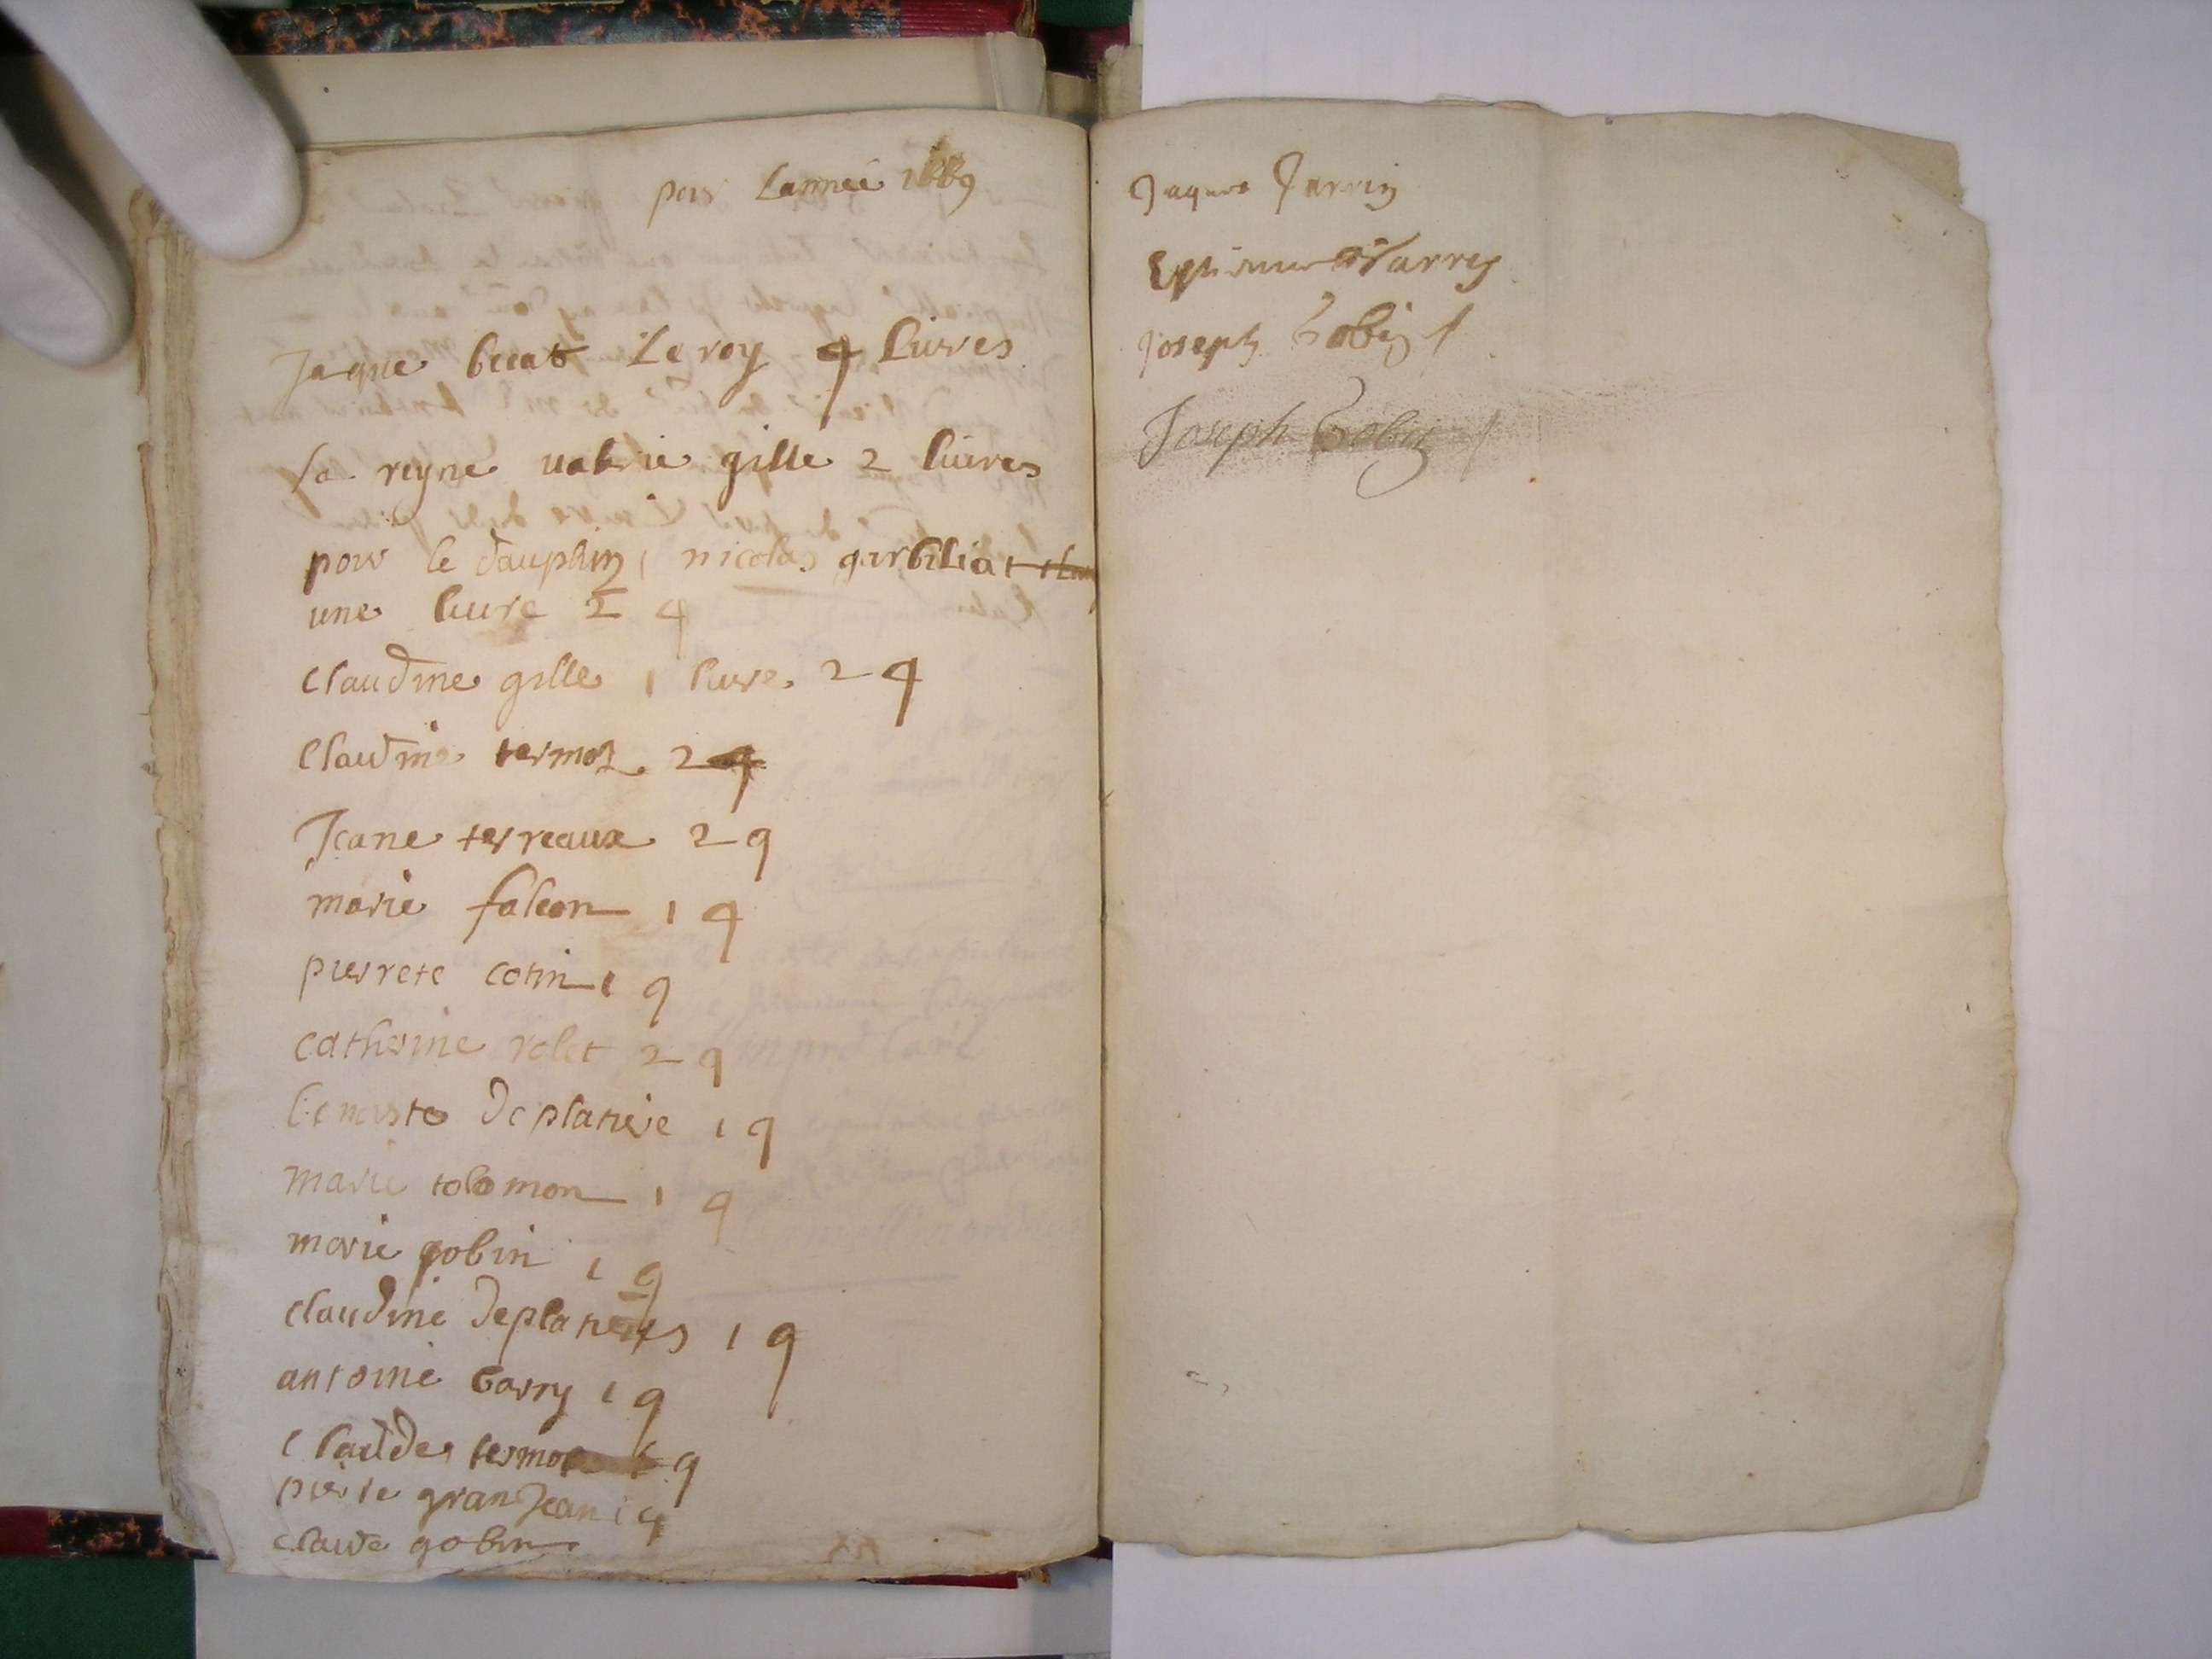 pour Lannee 1689
Jaque becat Le roy 4 livres
la reyne valerie gille 2 livres
pour le dauphin nicolas garbiliat
une livre 2 q
claudine gille 1 livre 2 q
Claudine termoz 2 q
Jeane terreaux 2 q
marie falcon 1 q
pierrete cotin 1 q
catherine rolet 2 q
benoiste deplatiere 1 q
marie tolomon 1 q
marie gobin 1 q
claudine deplatieres 1 q
antoine barry 1 q
claude termoz q
pierre granJean 1 q
claude gobin
Jaques Jarrin
Joseph Gobin
Joseph Gobin